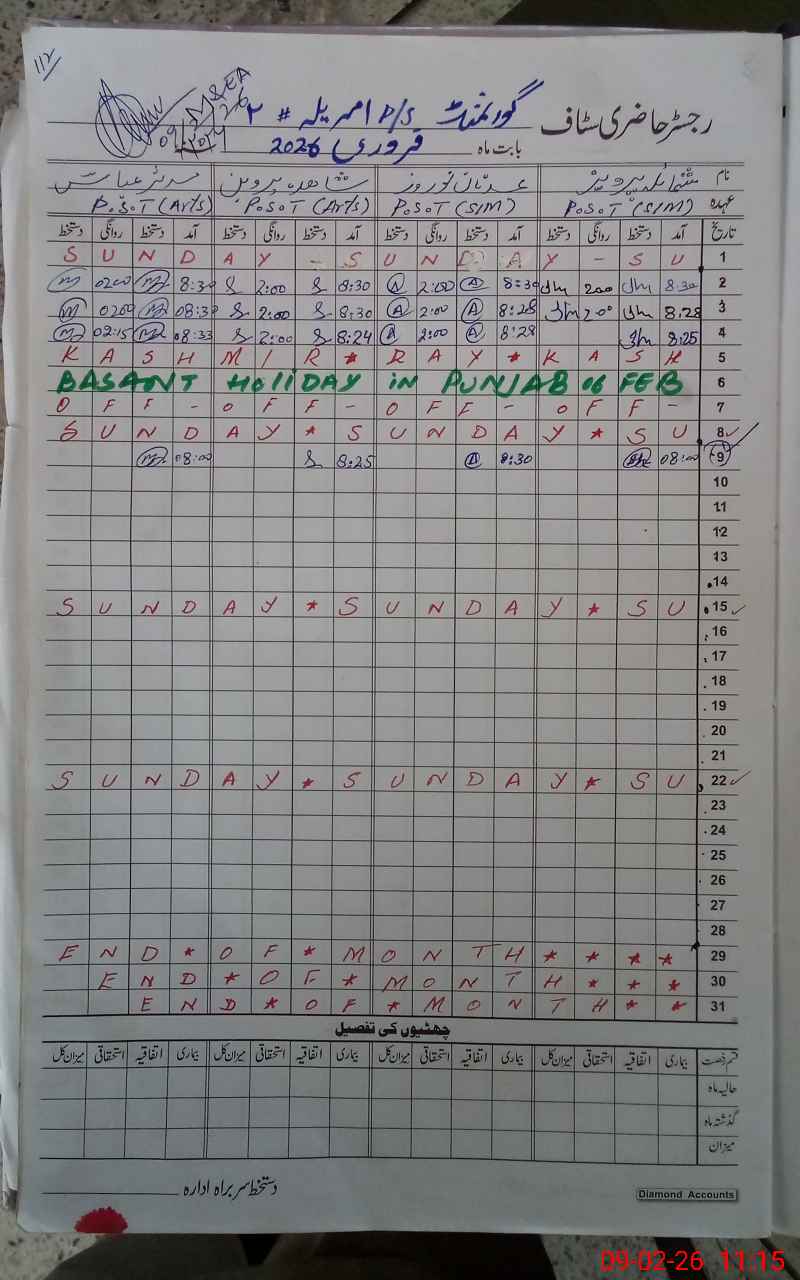 112
MSEA
رجسٹر حاضری سٹاف گورنمنٹ P/S امریلہ # ۲
بابت ماہ فروری 2026
نام شمائلہ پرویز عدنان نوروز شاھدہ پروین مدثر عباس
عہدہ P.S.T (S/M) P.S.T (S/M) P.S.T (Arts) P.S.T (Arts)
تاریخ آمد دستخط روانگی دستخط آمد دستخط روانگی دستخط آمد دستخط روانگی دستخط آمد دستخط روانگی دستخط
S U N D A Y - S U N D A Y - S U 1
0200 8:30 2:00 8:30 2:00 8:30 200 8:30 2
0200 08:30 2:00 8:30 2:00 8:28 200 8:28 3
02:15 08:33 2:00 8:24 2:00 8:28 8:25 4
K A S H M I R * D A Y * K A S H 5
BASANT HOLIDAY IN PUNJAB 06 FEB 6
O F F - O F F - O F F - O F F - 7
S U N D A Y * S U N D A Y * S U 8
08:00 8:25 8:30 08:00 9
10
11
12
13
14
S U N D A Y * S U N D A Y * S U 15
16
17
18
19
20
21
S U N D A Y * S U N D A Y * S U 22
23
24
25
26
27
28
E N D * O F * M O N T H * * * * 29
E N D * O F * M O N T H * * * 30
E N D * O F * M O N T H * * 31
چھٹیوں کی تفصیل
قسم رخصت بیماری اتفاقیہ استحقاقی میزان کل بیماری اتفاقیہ استحقاقی میزان کل بیماری اتفاقیہ استحقاقی میزان کل بیماری اتفاقیہ استحقاقی میزان کل
حالیہ ماہ
گذشتہ ماہ
میزان
دستخط سربراہ ادارہ
Diamond Accounts
09-02-26 11:15